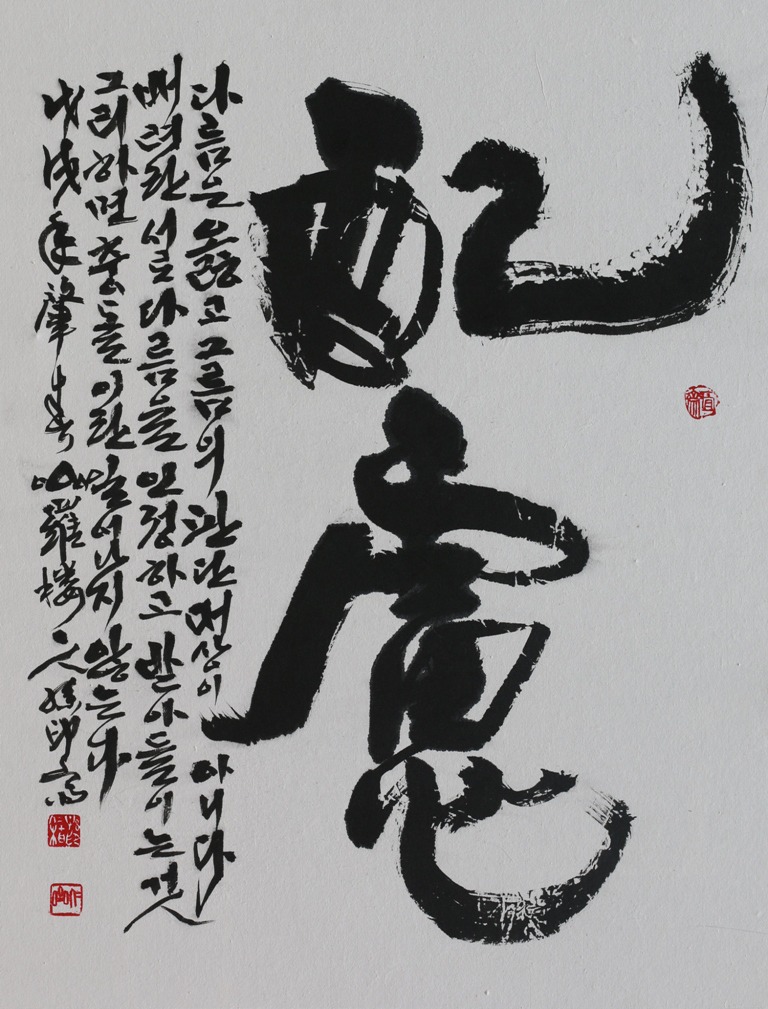 配慮
다름은 옳고 그름의 판단 대상이 아니다
배려란 서로 다름을 인정하고 받아들이는 것
그리하면 충돌이란 늘어나지 않는다
戊戌年肇春